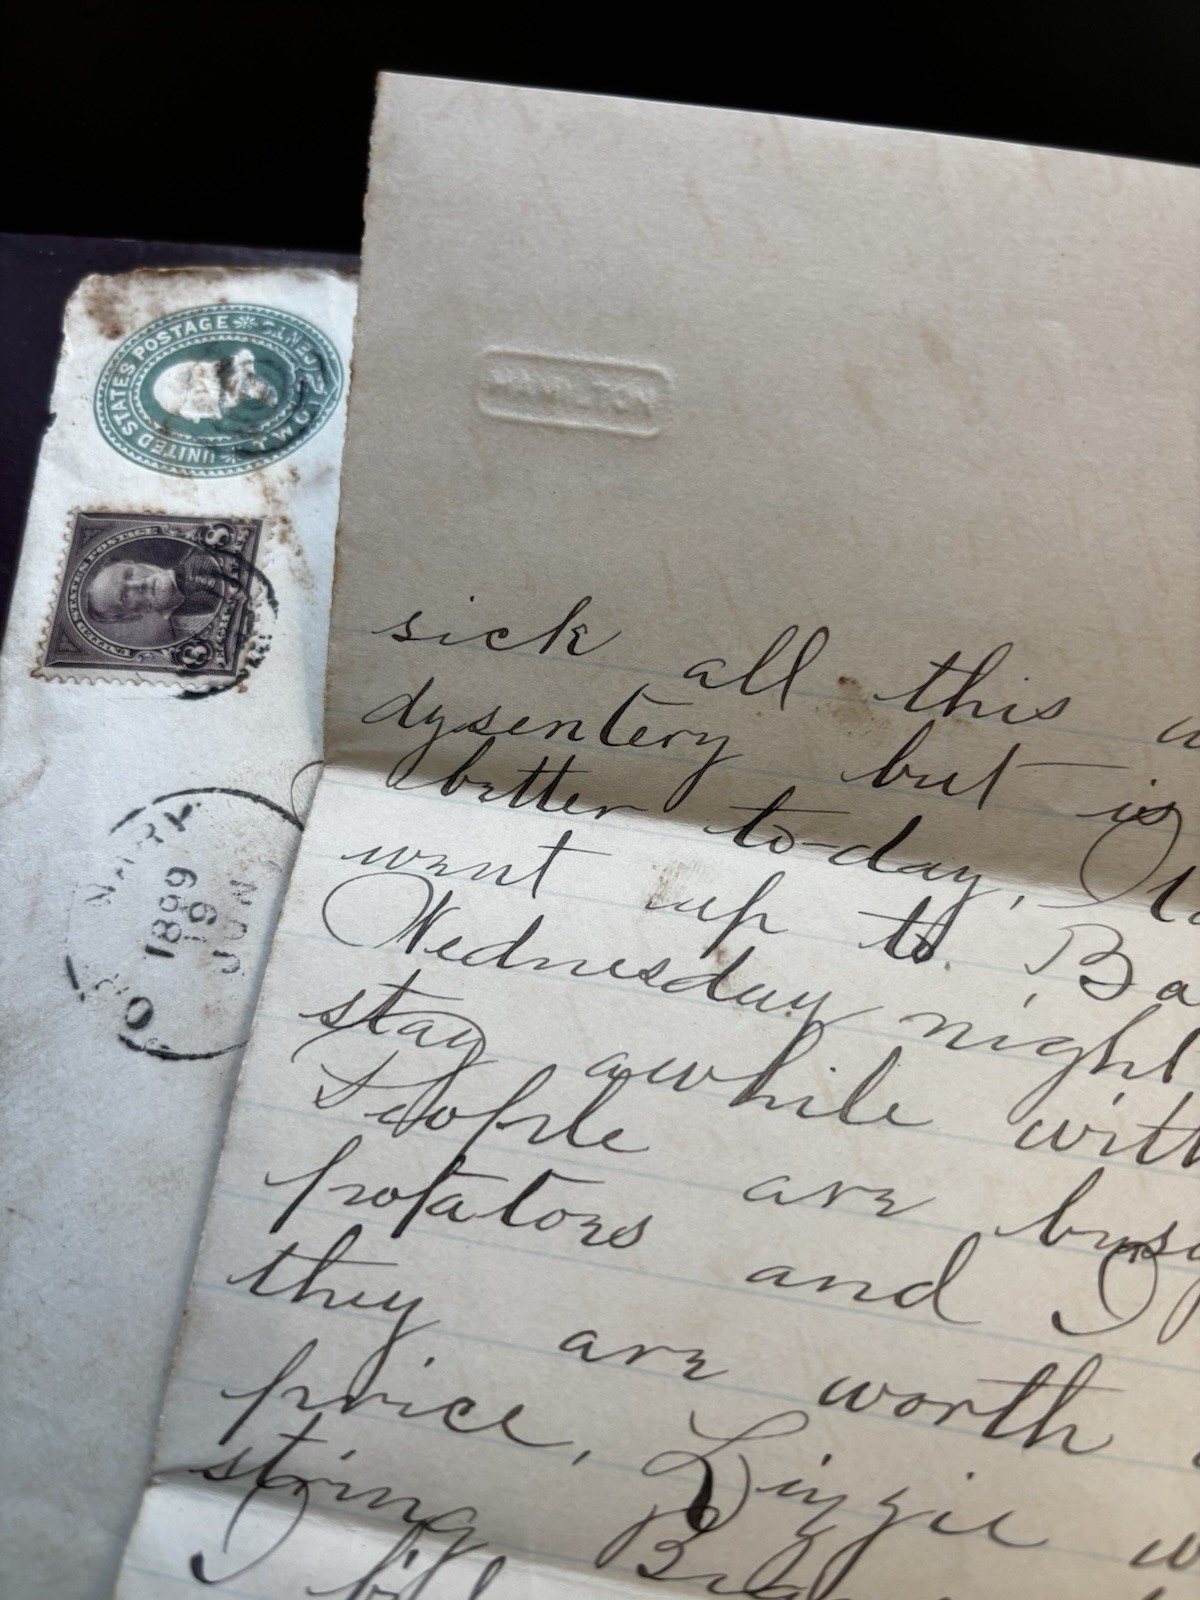 UNITED STATES POSTAGE
TWO CENTS
UNITED STATES POSTAGE
8
8
1899
19
JUN
sick all this
dysentery but is
better to-day,
went up to
Wednesday night
stay awhile with
People are busy
potatoes and
they are worth
price, Lizzie
string